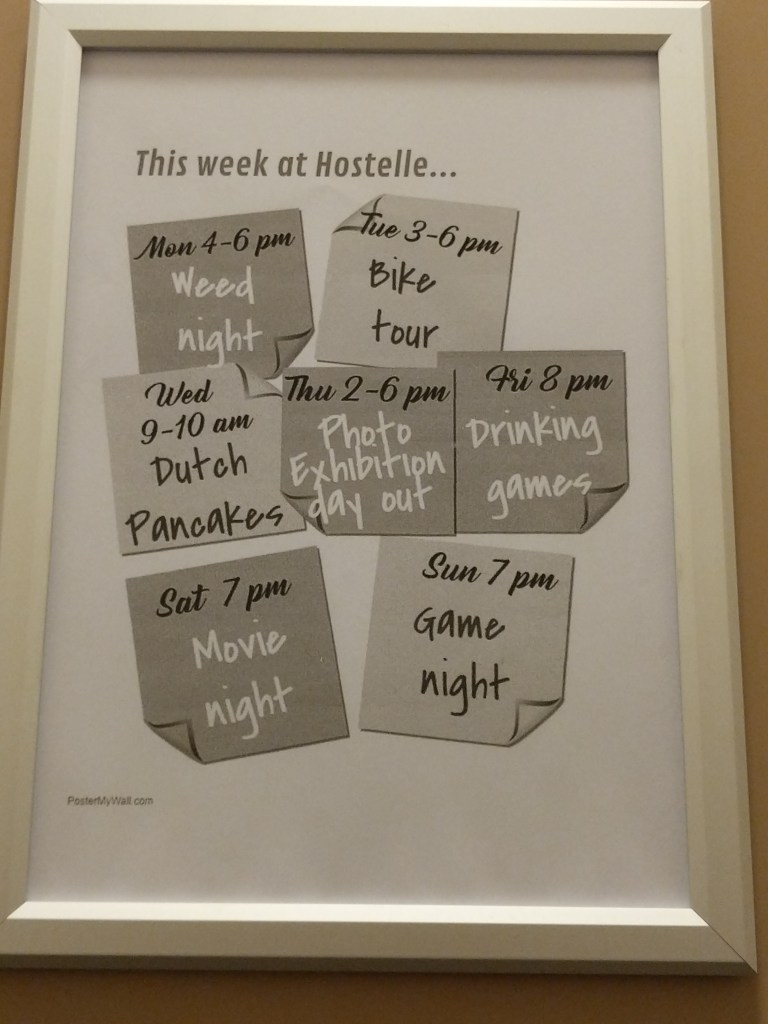 This week at Hostelle...
Mon 4-6 pm
Weed
night
Tue 3-6 pm
Bike
tour
Wed
9-10 am
Dutch
Pancakes
Thu 2-6 pm
Photo
Exhibition
day out
Fri 8 pm
Drinking
games
Sat 7 pm
Movie
night
Sun 7 pm
Game
night
PosterMyWall.com